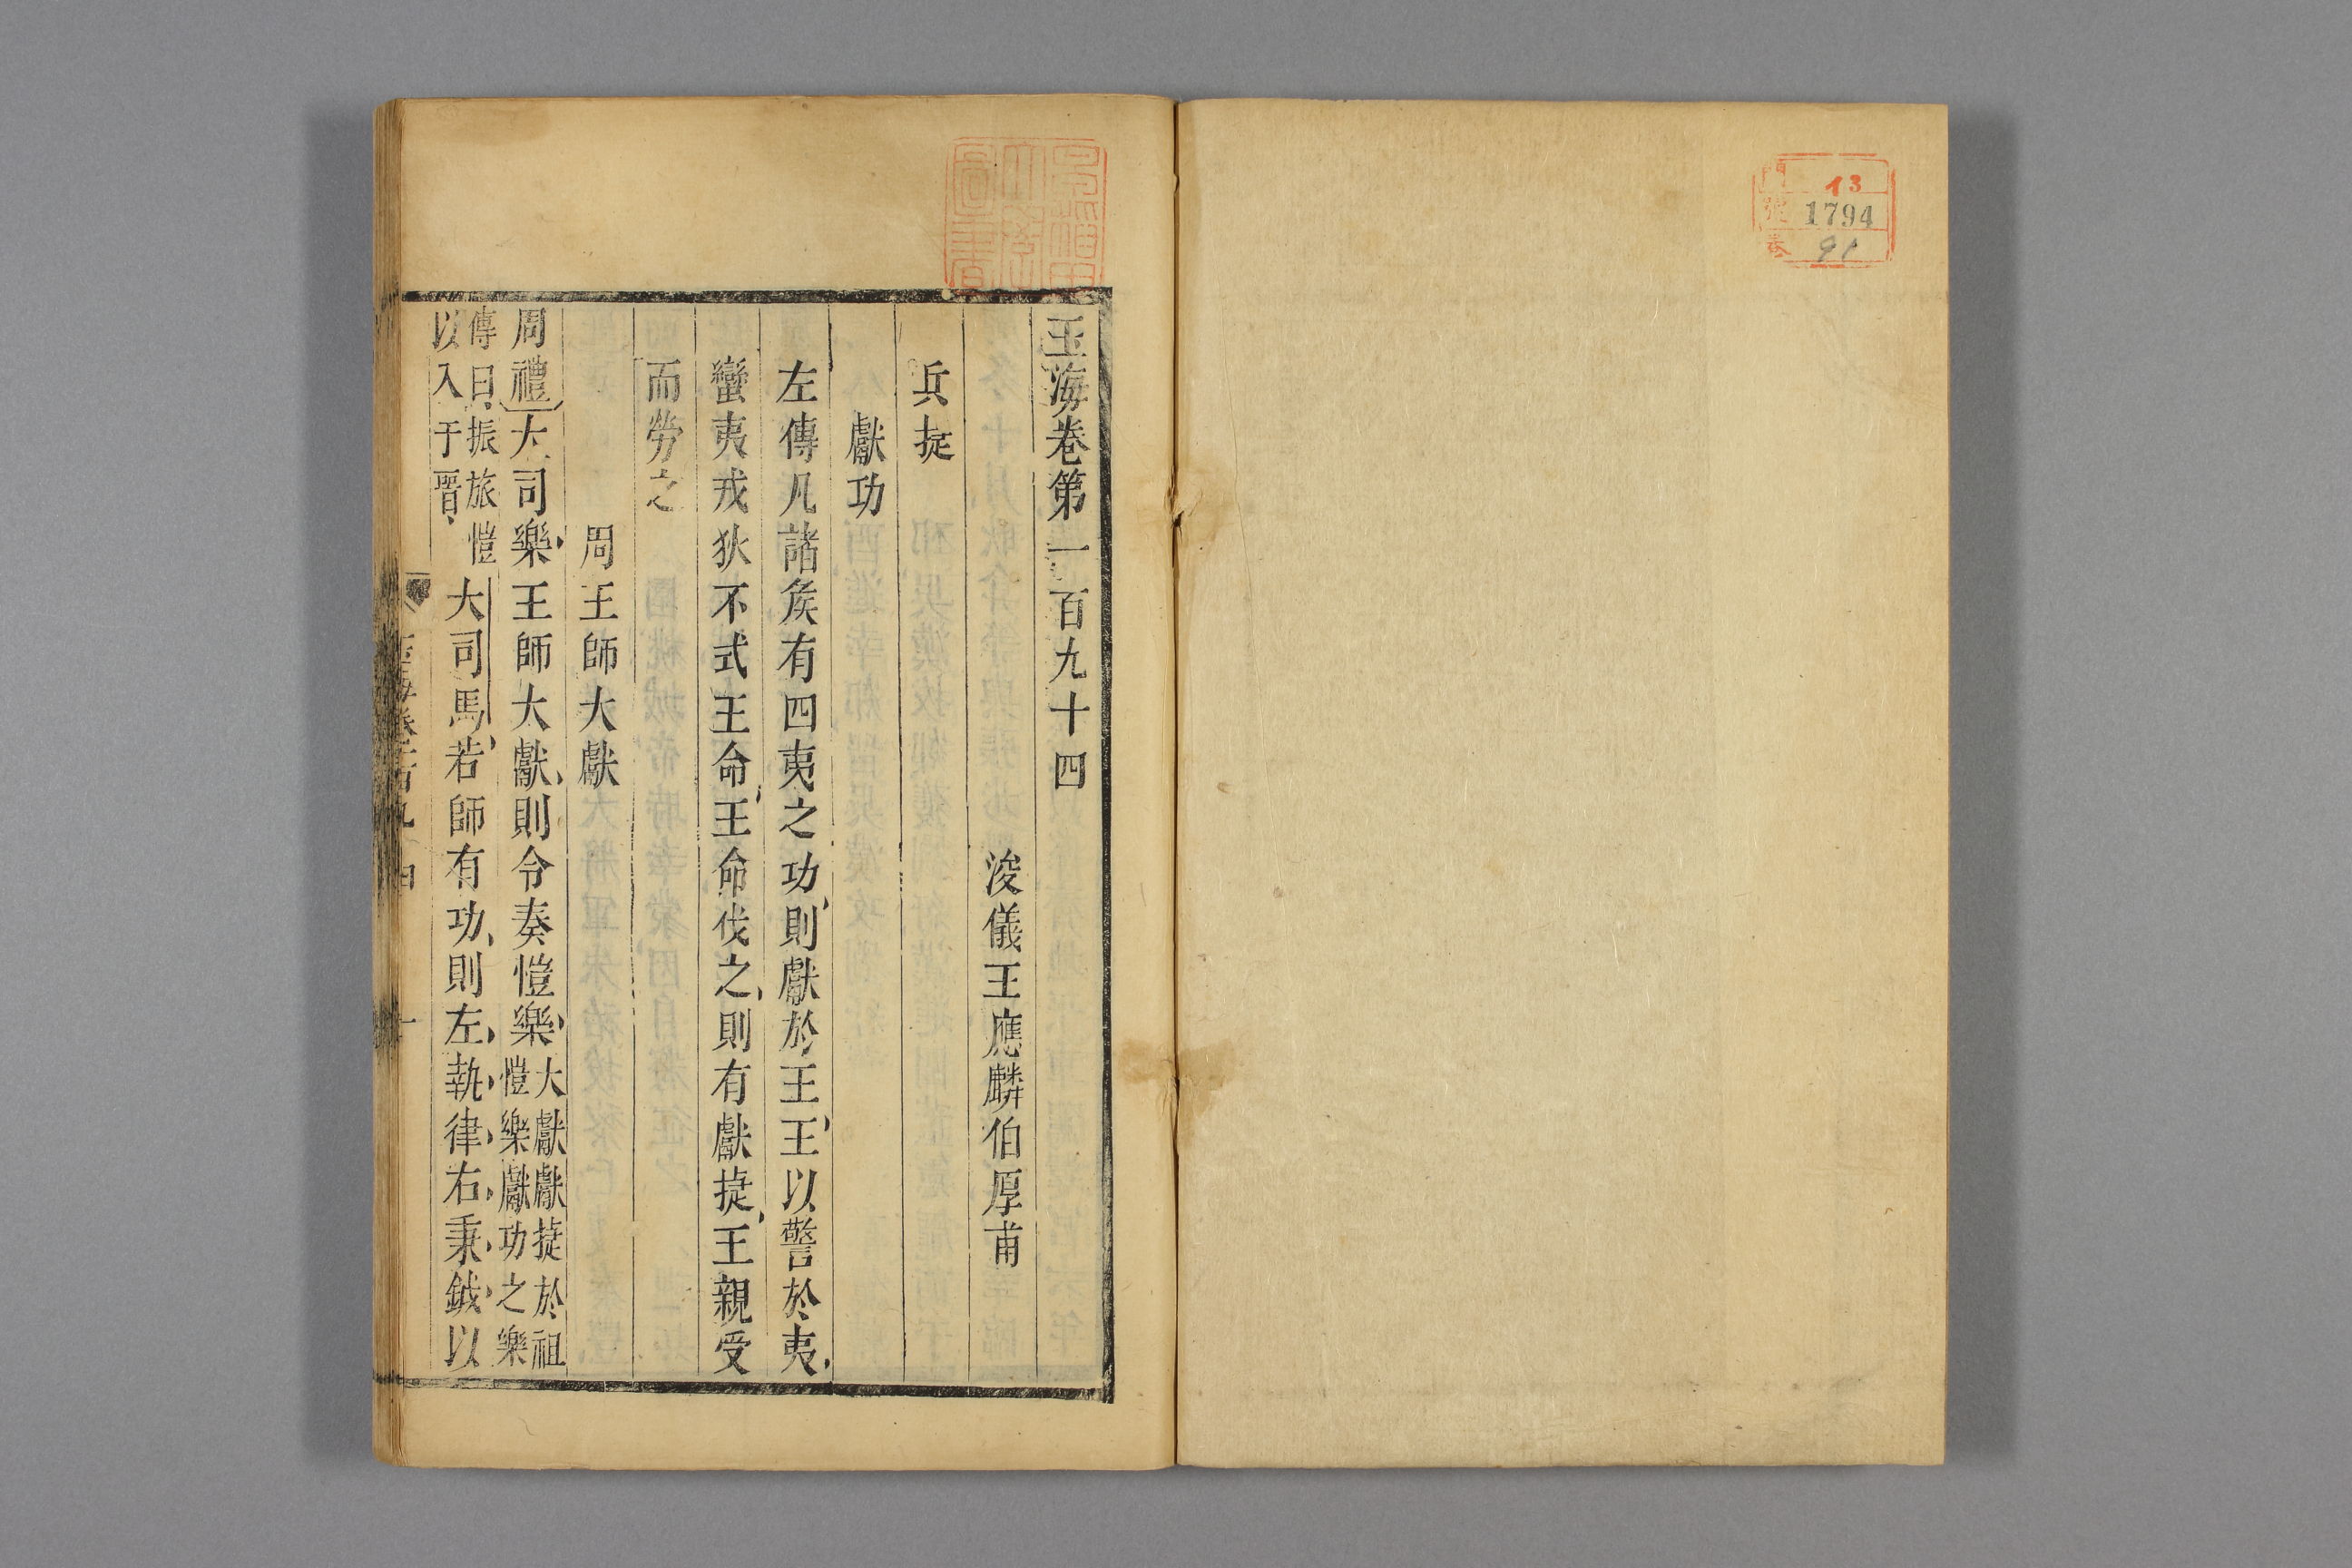 門 13
號 1794
卷 91
玉海卷第一百九十四
浚儀王應麟伯厚甫
兵捷
獻功
左傳凡諸矦有四夷之功則獻於王王以警於夷
蠻夷戎狄不式王命王命伐之則有獻捷王親受
而勞之
周王師大獻
周禮大司樂王師大獻則令奏愷樂大獻獻捷於祖
愷樂獻功之樂
傳曰振旅愷
以入于晉大司馬若師有功則左執律右秉鉞以